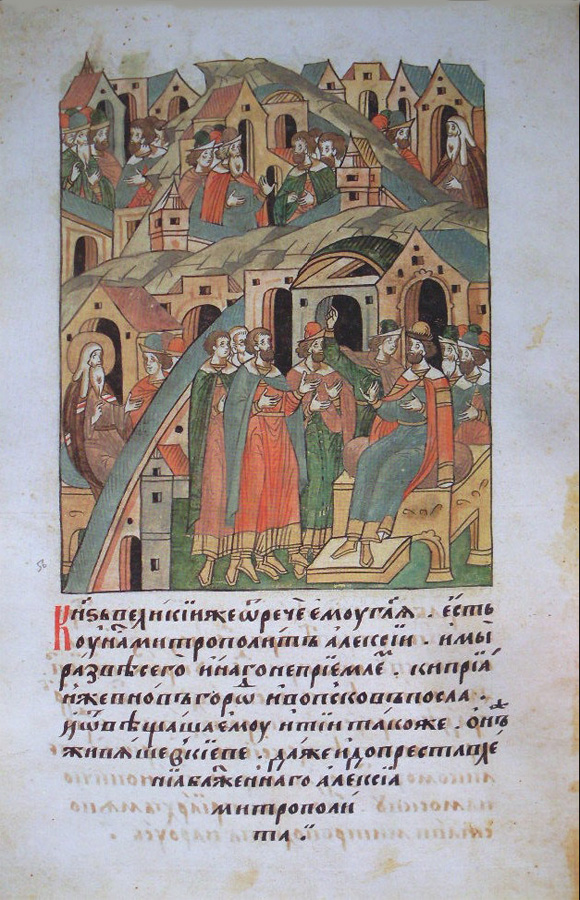 Кн҃ѕь великїи же ѿрече емоу гл҃ѧ . есть
оу на митрополитъ алексїи . и мы
развѣ сего инаго не прїемлеᷨ . кипрїа
же в новъгороⷣ и во псковъ посла .
и ѿвѣщаша емоу и тїи такоже . онъ же
живѧше в кїеве . даже и до преставле
нїа блаженнаго алексїа
митрополи
та .
56